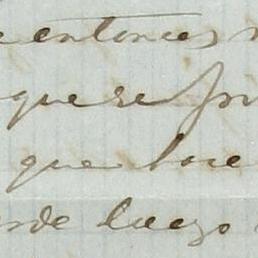 entonces
que se
que hace
de luego